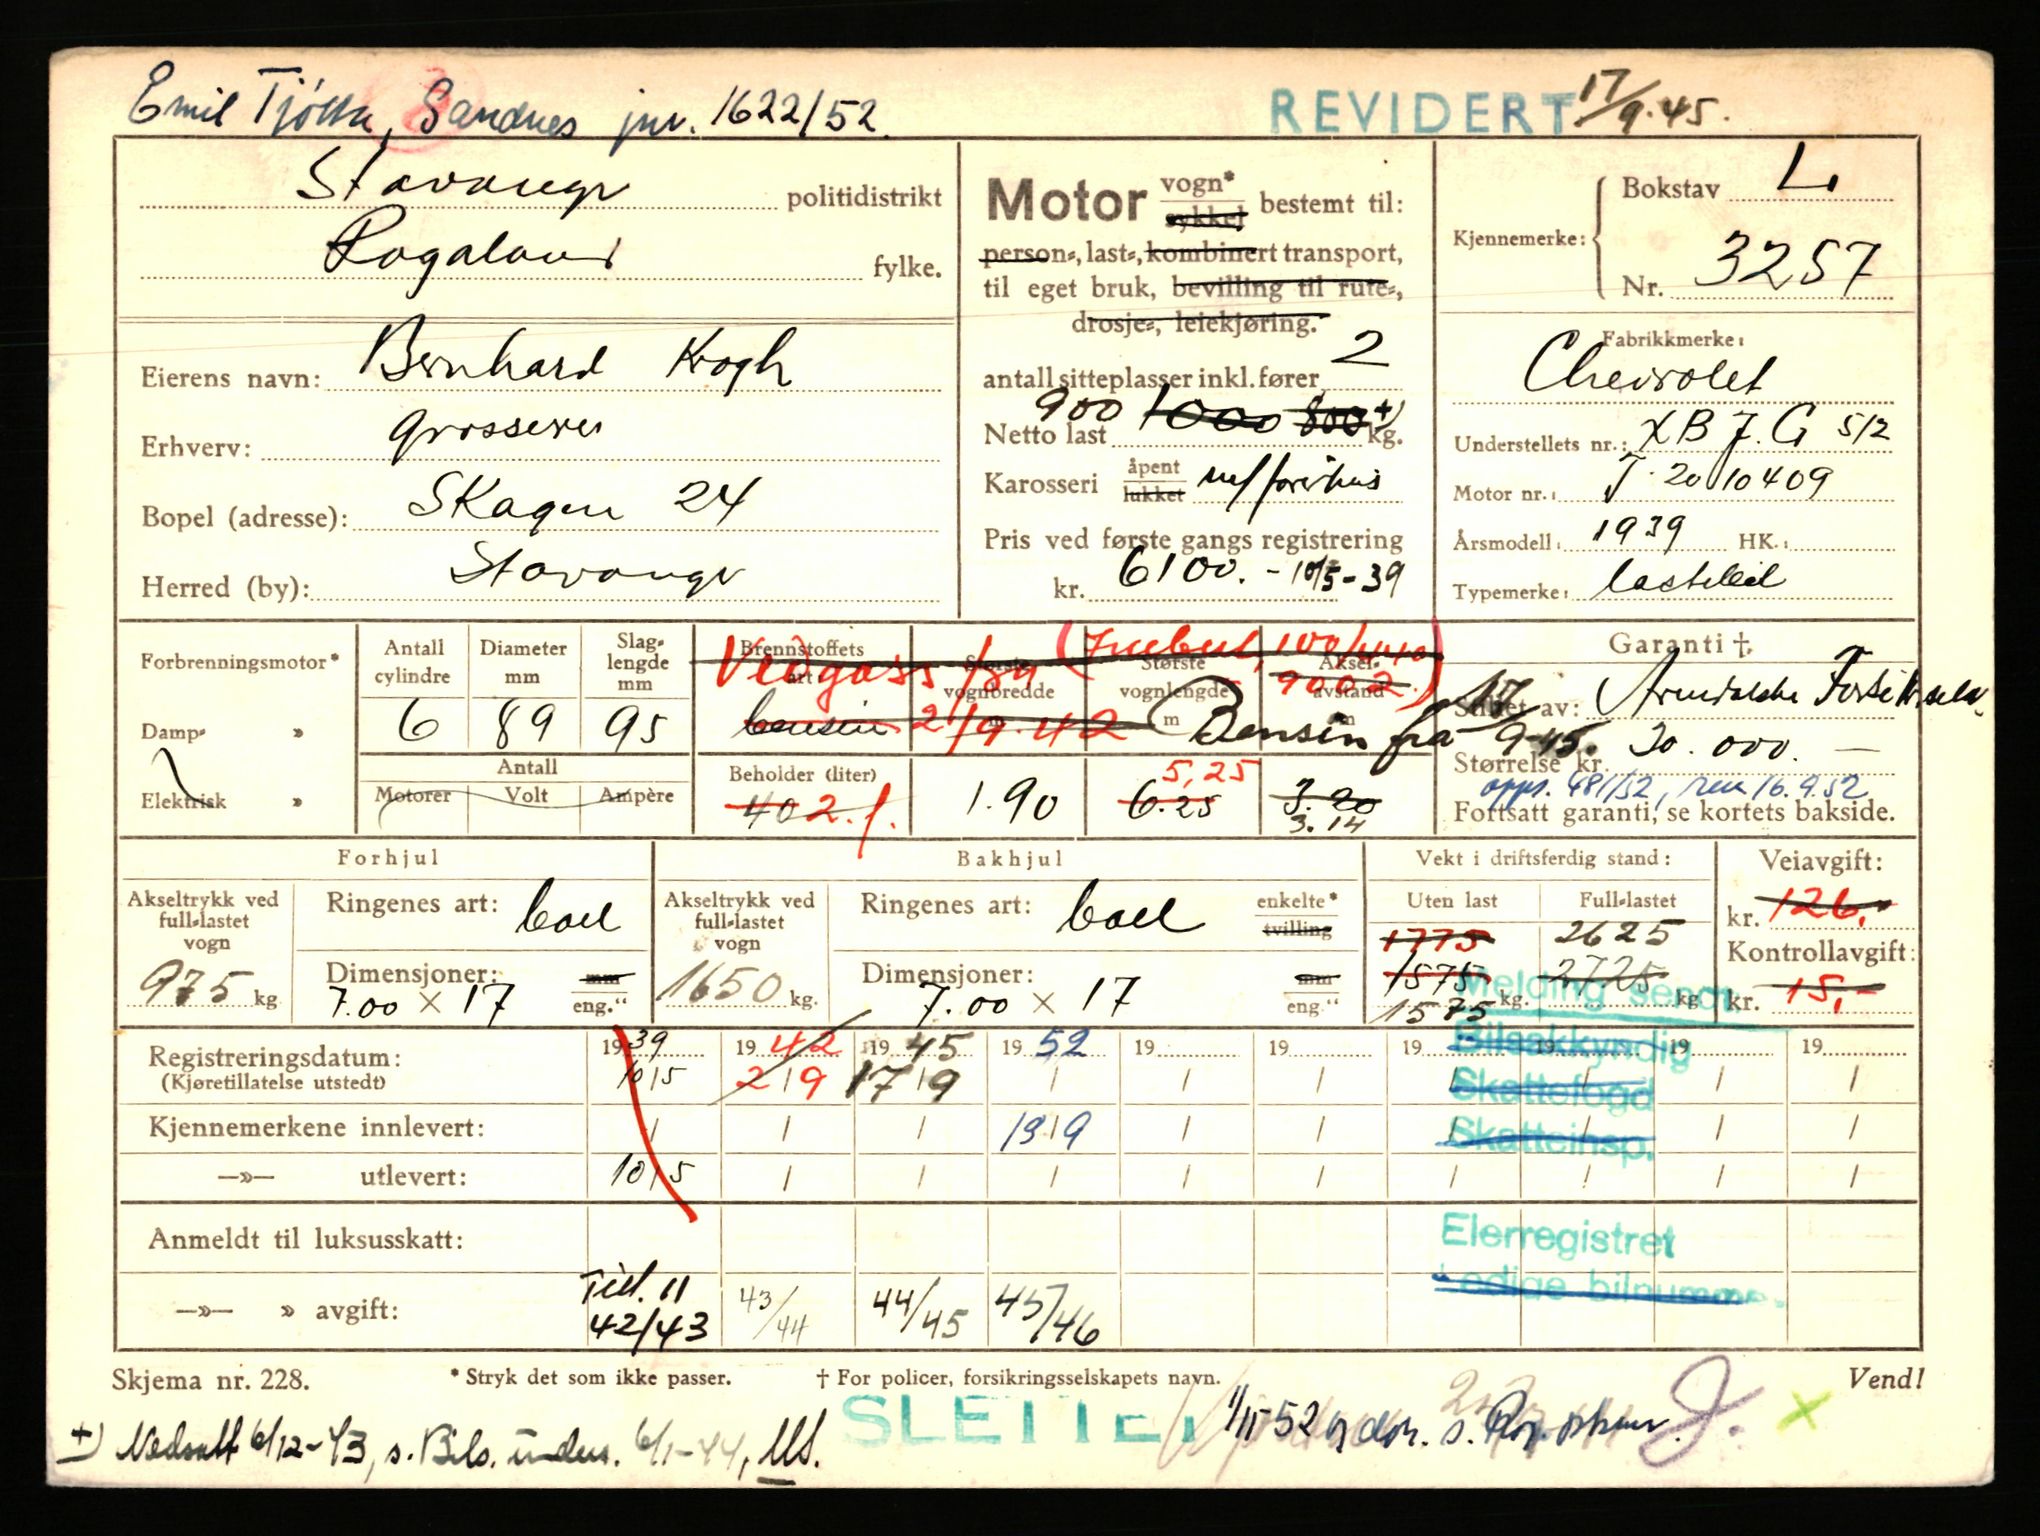 Emil Tjøtta, Sandnes jnr. 1622/52.
REVIDERT 17/9.45.
Stavanger politidistrikt
Rogaland fylke.
Eierens navn: Bernhard Krogh
Erhverv: grosserer
Bopel (adresse): Skagen 24
Herred (by): Stavanger
Motor vogn* sykkel bestemt til:
person-, last-, kombinert transport,
til eget bruk, bevilling til rute-,
drosje-, leiekjøring.
antall sitteplasser inkl. fører 2
Netto last 900 1000 800 +) kg.
Karosseri åpent lukket m/førerhus
Pris ved første gangs registrering
kr. 6100.- 10/5-39
Kjennemerke: Bokstav L
Nr. 3257
Fabrikkmerke:
Chevrolet
Understellets nr.: XB J. G 512
Motor nr.: T. 2010409
Årsmodell: 1939 HK.:
Typemerke: lastebil
Forbrenningsmotor*
Damp- »
Elektrisk »
Antall cylindre 6
Diameter mm 89
Slaglengde mm 95
Antall
Motorer Volt Ampère
Brennstoffets art bensin
Vedgass fra 2/9.42
Største vognbredde m
Største vognlengde m
Akselavstand m
Bensin fra 17/9-45.
Beholder (liter) 40 2.f.
1.90
6.25 5,25
3.20 3.14
Garanti †
Stillet av: Arendalske Forsikr.selsk.
Størrelse kr. 20.000.—
opps. 481/52, 16.9.52
Fortsatt garanti, se kortets bakside.
Forhjul
Akseltrykk ved full-lastet vogn 975 kg.
Ringenes art: ball
Dimensjoner: 7.00 × 17 mm eng."
Bakhjul
Akseltrykk ved full-lastet vogn 1650 kg.
Ringenes art: ball enkelte* tvilling
Dimensjoner: 7.00 × 17 mm eng."
Vekt i driftsferdig stand:
Uten last 1775 1575 1575 kg.
Full-lastet 2625 2725 kg
Veiavgift:
kr. 126.-
Kontrollavgift:
kr. 15,-
Melding sendt
Bilsakkyndig
Skattefogd
Skatteinsp.
Eierregistret
Ledige bilnumme
Registreringsdatum: 1939 1942 1945 1952 19 19 19 19 19 19
(Kjøretillatelse utstedt) 10/5 2/9 17/9 / / / / / / /
Kjennemerkene innlevert: / / / 19/9 / / / / / /
—»— utlevert: 10/5 / / / / / / / / /
Anmeldt til luksusskatt:
—»— » avgift: Til. 11 42/43 43/44 44/45 45/46
Skjema nr. 228.
* Stryk det som ikke passer.
† For policer, forsikringsselskapets navn.
Vend!
SLETTET 1/11 52
+) Nedsatt 6/12-43, s. Bils. undes. 6/1-44,